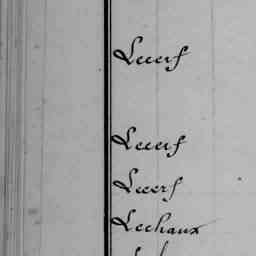 Lecerf
Lecerf
Lecerf
Lechaux